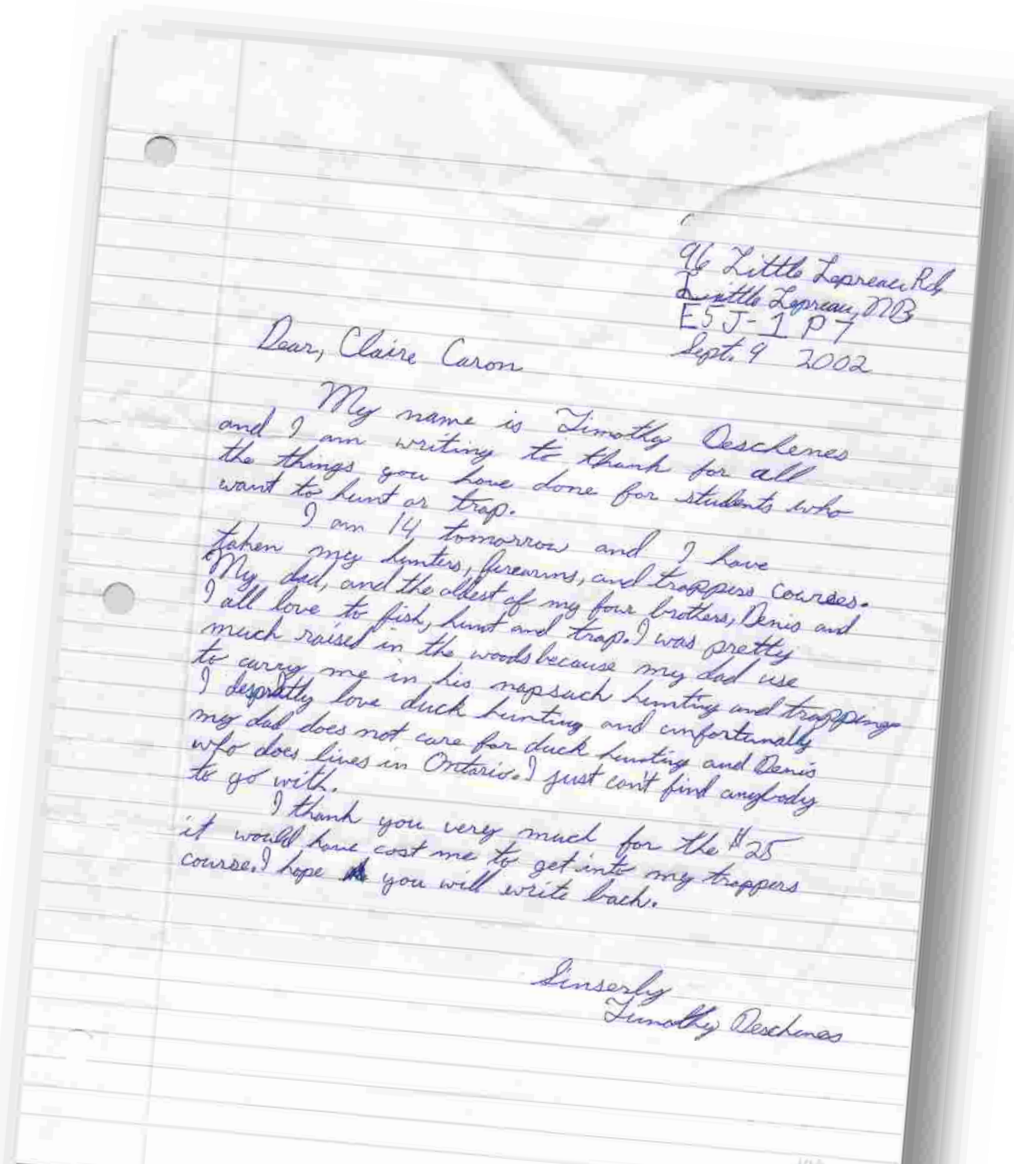 96 Little Lepreau Rd
Little Lepreau, NB
E5J-1P7
Sept. 9 2002
Dear, Claire Caron
My name is Timothy Deschenes
and I am writing to thank for all
the things you have done for students who
want to hunt or trap.
I am 14 tomorrow and I have
taken my hunters, firearms, and trappers courses.
My dad, and the oldest of my four brothers, Denis and
I all love to fish, hunt and trap. I was pretty
much raised in the woods because my dad use
to carry me in his napsack hunting and trapping.
I despratly love duck hunting and unfortunally
my dad does not care for duck hunting and Denis
who does lives in Ontario. I just can't find anybody
to go with.
I thank you very much for the $25
it would have cost me to get into my trappers
course. I hope you will write back.
Sinserly
Timothy Deschenes